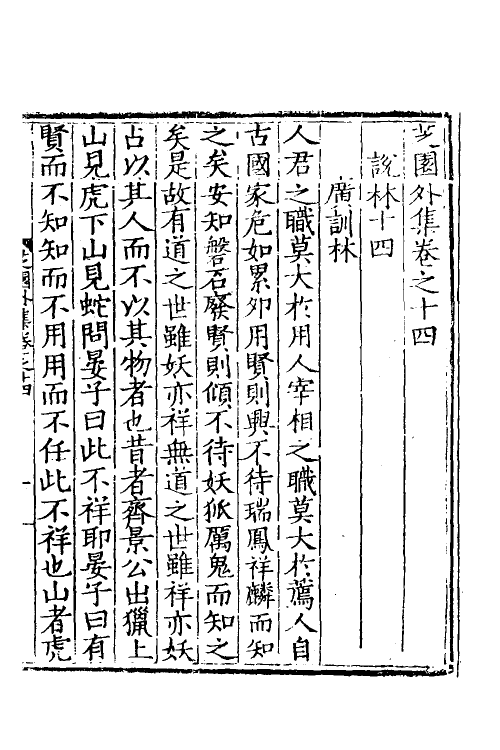 芝園外集卷之十四
說林十四
廣訓林
人君之職莫大於用人宰相之職莫大於薦人自
古國家危如累卵用賢則興不待瑞鳳祥麟而知
之矣安知磐石廢賢則傾不待妖狐厲鬼而知之
矣是故有道之世雖妖亦祥無道之世雖祥亦妖
占以其人而不以其物者也昔者齊景公出獵上
山見虎下山見蛇問晏子曰此不祥耶晏子曰有
賢而不知知而不用用而不任此不祥也山者虎
芝園外集卷之十四
一